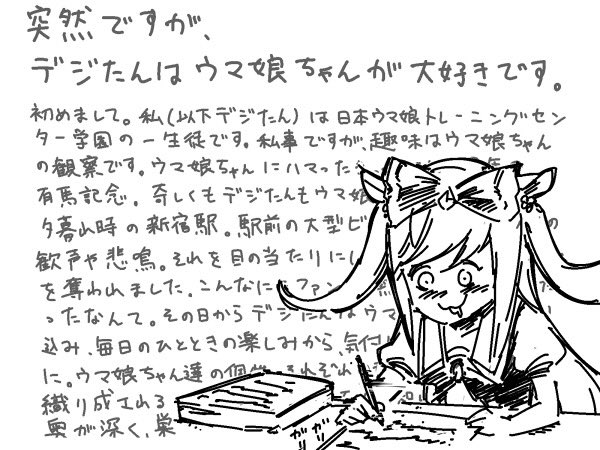 突然ですが、
デジたんはウマ娘ちゃんが大好きです。
初めまして。私(以下デジたん)は日本ウマ娘トレーニングセン
ター学園の一生徒です。私事ですが、趣味はウマ娘ちゃん
の観察です。ウマ娘ちゃんにハマった
有馬記念。奇しくもデジたんもウマ娘
夕暮れ時の新宿駅。駅前の大型ビ
歓声や悲鳴。それを目の当たりにし
を奪われました。こんなに ファン
ったなんて。その日からデジたんはウマ
込み、毎日のひとときの楽しみから、気付
に。ウマ娘ちゃん達の個性、それぞれ
織り成される
奥が深く、巣
ガリガリ